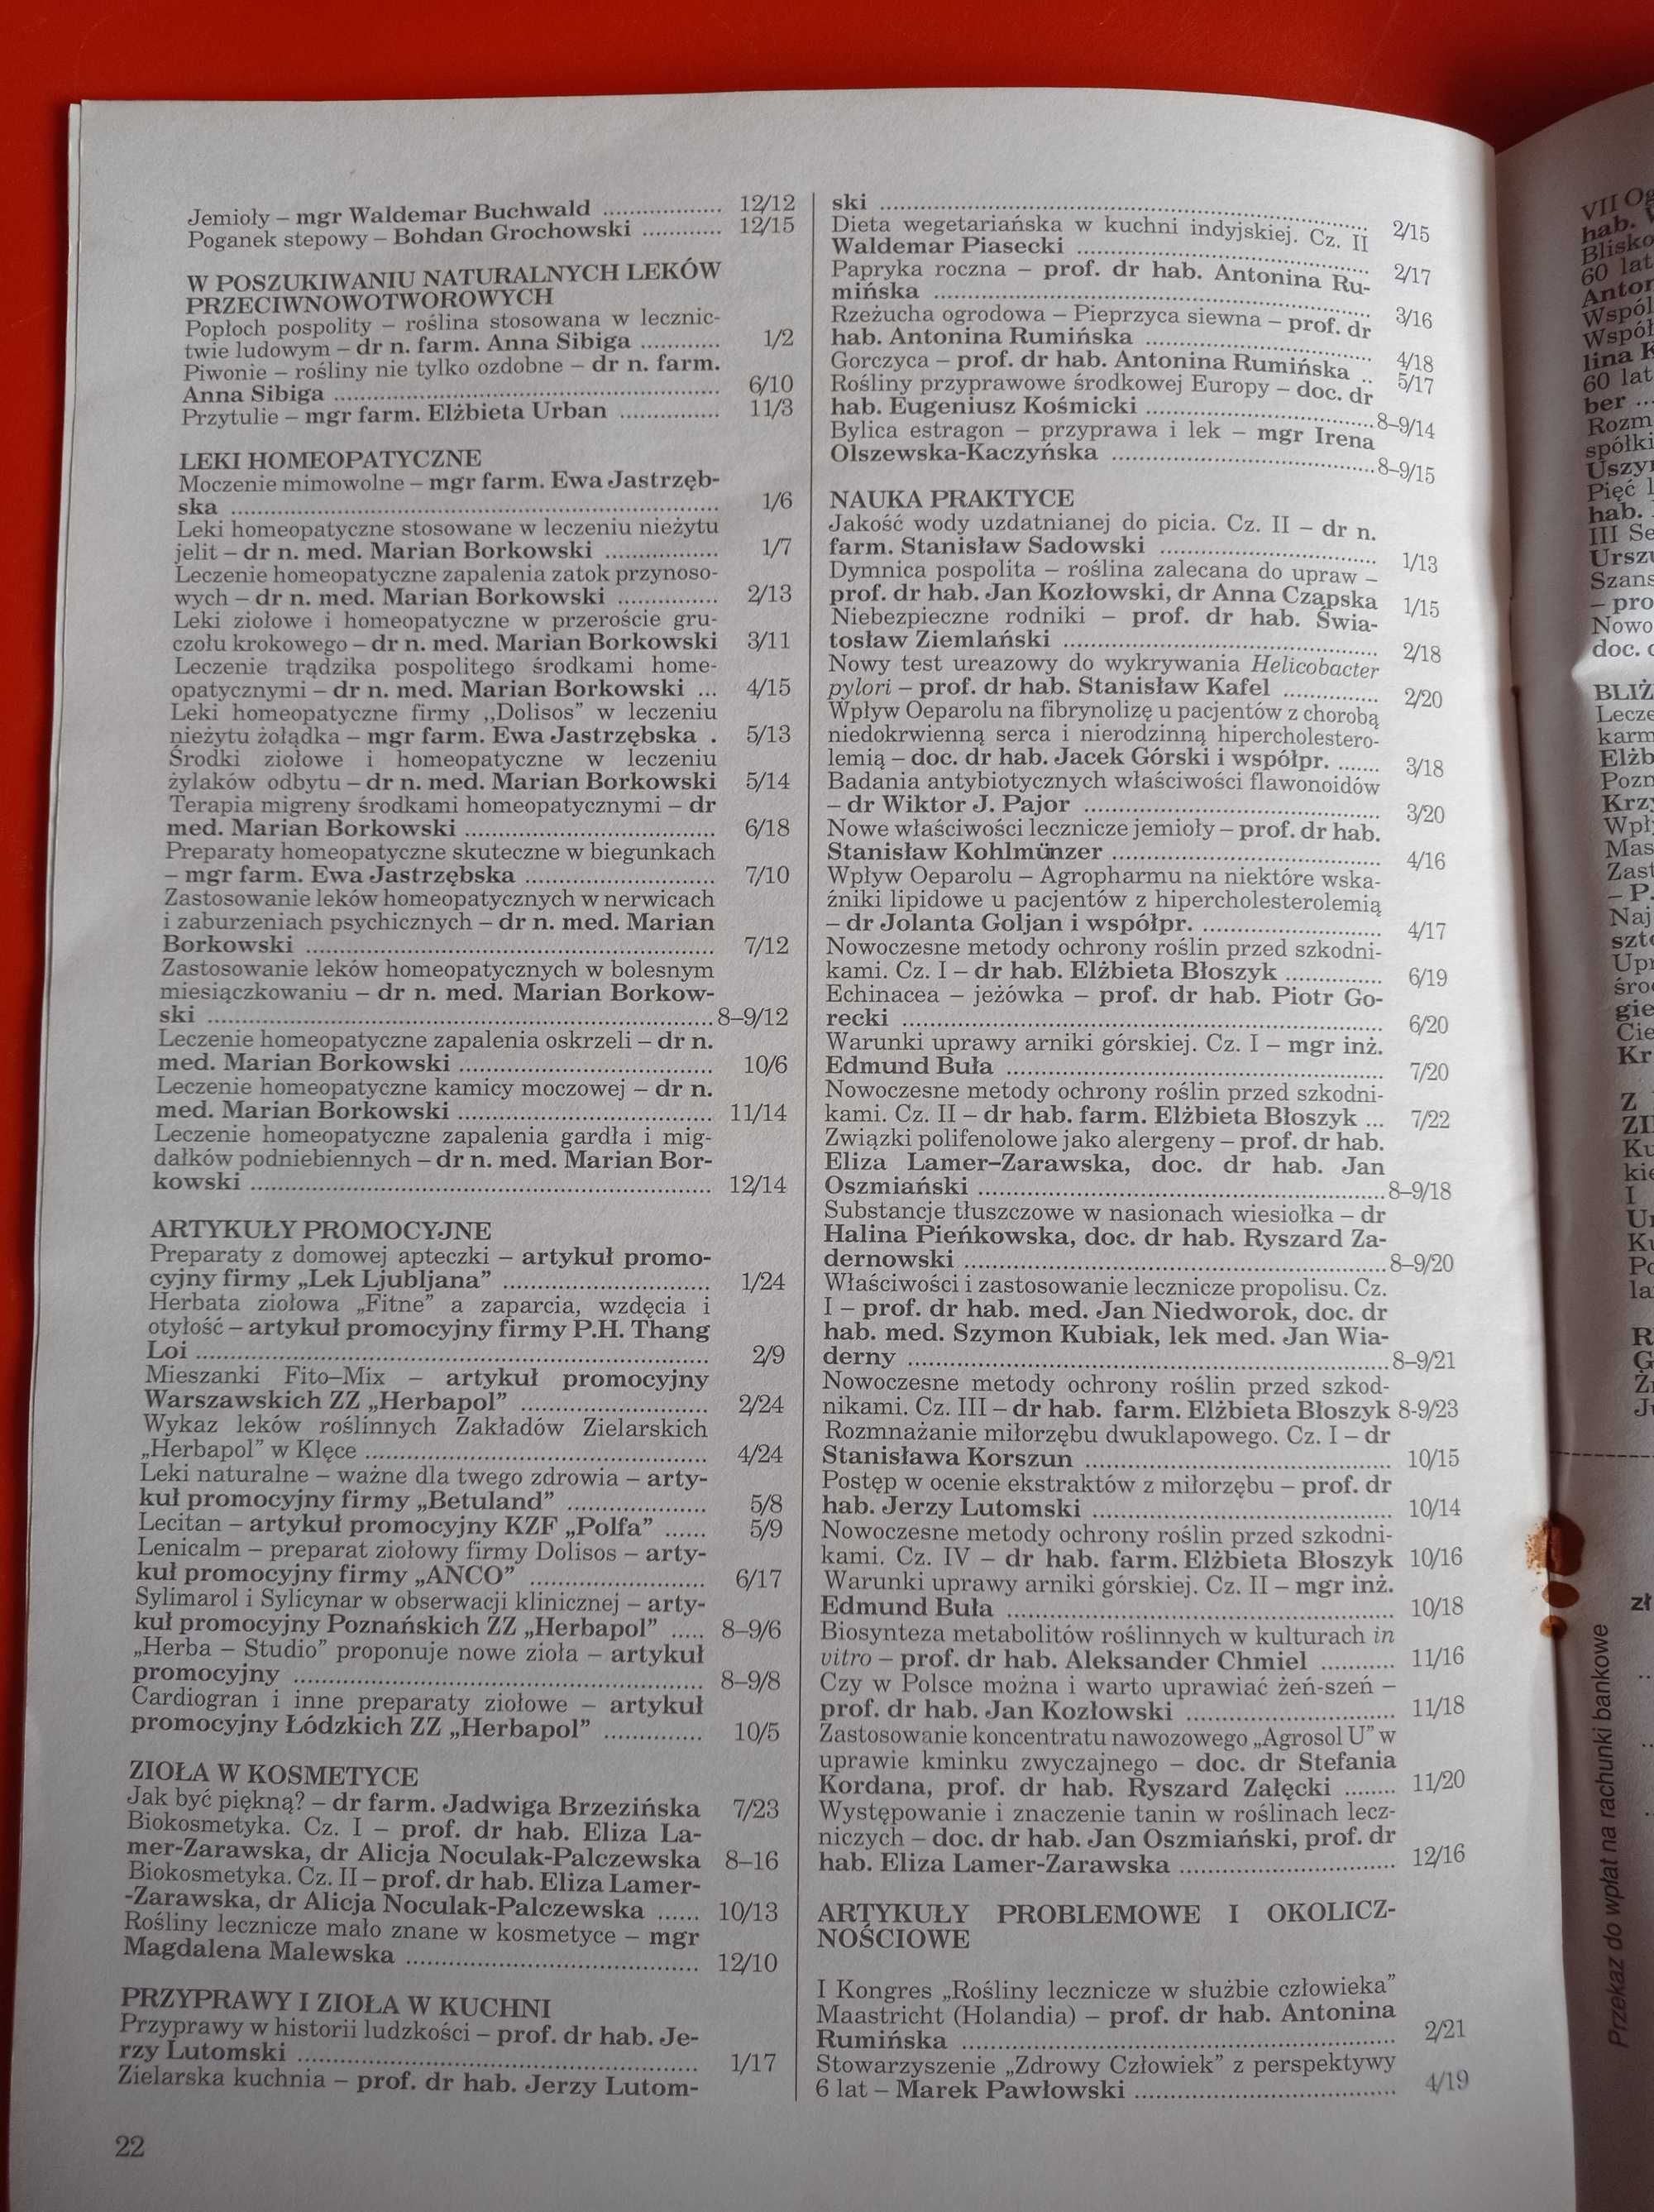 Jemioły – mgr Waldemar Buchwald .................. 12/12
Poganek stepowy – Bohdan Grochowski ............ 12/15
W POSZUKIWANIU NATURALNYCH LEKÓW
PRZECIWNOWOTWOROWYCH
Popłoch pospolity – roślina stosowana w lecznic-
twie ludowym – dr n. farm. Anna Sibiga ............ 1/2
Piwonie – rośliny nie tylko ozdobne – dr n. farm.
Anna Sibiga ............ 6/10
Przytulie – mgr farm. Elżbieta Urban ............ 11/3
LEKI HOMEOPATYCZNE
Moczenie mimowolne – mgr farm. Ewa Jastrzęb-
ska ............ 1/6
Leki homeopatyczne stosowane w leczeniu nieżytu
jelit – dr n. med. Marian Borkowski ............ 1/7
Leczenie homeopatyczne zapalenia zatok przynoso-
wych – dr n. med. Marian Borkowski ............ 2/13
Leki ziołowe i homeopatyczne w przeroście gru-
czołu krokowego – dr n. med. Marian Borkowski 3/11
Leczenie trądzika pospolitego środkami home-
opatycznymi – dr n. med. Marian Borkowski ... 4/15
Leki homeopatyczne firmy ,,Dolisos” w leczeniu
nieżytu żołądka – mgr farm. Ewa Jastrzębska . 5/13
Środki ziołowe i homeopatyczne w leczeniu
żylaków odbytu – dr n. med. Marian Borkowski 5/14
Terapia migreny środkami homeopatycznymi – dr
med. Marian Borkowski ............ 6/18
Preparaty homeopatyczne skuteczne w biegunkach
– mgr farm. Ewa Jastrzębska ............ 7/10
Zastosowanie leków homeopatycznych w nerwicach
i zaburzeniach psychicznych – dr n. med. Marian
Borkowski ............ 7/12
Zastosowanie leków homeopatycznych w bolesnym
miesiączkowaniu – dr n. med. Marian Borkow-
ski ............ 8–9/12
Leczenie homeopatyczne zapalenia oskrzeli – dr n.
med. Marian Borkowski ............ 10/6
Leczenie homeopatyczne kamicy moczowej – dr n.
med. Marian Borkowski ............ 11/14
Leczenie homeopatyczne zapalenia gardła i mig-
dałków podniebiennych – dr n. med. Marian Bor-
kowski ............ 12/14
ARTYKUŁY PROMOCYJNE
Preparaty z domowej apteczki – artykuł promo-
cyjny firmy „Lek Ljubljana” ............ 1/24
Herbata ziołowa „Fitne” a zaparcia, wzdęcia i
otyłość – artykuł promocyjny firmy P.H. Thang
Loi ............ 2/9
Mieszanki Fito–Mix – artykuł promocyjny
Warszawskich ZZ „Herbapol” ............ 2/24
Wykaz leków roślinnych Zakładów Zielarskich
„Herbapol” w Klęce ............ 4/24
Leki naturalne – ważne dla twego zdrowia – arty-
kuł promocyjny firmy „Betuland” ............ 5/8
Lecitan – artykuł promocyjny KZF „Polfa” ...... 5/9
Lenicalm – preparat ziołowy firmy Dolisos – arty-
kuł promocyjny firmy „ANCO” ............ 6/17
Sylimarol i Sylicynar w obserwacji klinicznej – arty-
kuł promocyjny Poznańskich ZZ „Herbapol” ..... 8–9/6
„Herba – Studio” proponuje nowe zioła – artykuł
promocyjny ............ 8–9/8
Cardiogran i inne preparaty ziołowe – artykuł
promocyjny Łódzkich ZZ „Herbapol” ............ 10/5
ZIOŁA W KOSMETYCE
Jak być piękną? – dr farm. Jadwiga Brzezińska 7/23
Biokosmetyka. Cz. I – prof. dr hab. Eliza La-
mer-Zarawska, dr Alicja Noculak-Palczewska 8–16
Biokosmetyka. Cz. II – prof. dr hab. Eliza Lamer-
-Zarawska, dr Alicja Noculak-Palczewska ...... 10/13
Rośliny lecznicze mało znane w kosmetyce – mgr
Magdalena Malewska ............ 12/10
PRZYPRAWY I ZIOŁA W KUCHNI
Przyprawy w historii ludzkości – prof. dr hab. Je-
rzy Lutomski ............ 1/17
Zielarska kuchnia – prof. dr hab. Jerzy Lutom-
22
ski ............ 2/15
Dieta wegetariańska w kuchni indyjskiej. Cz. II
Waldemar Piasecki ............ 2/17
Papryka roczna – prof. dr hab. Antonina Ru-
mińska ............ 3/16
Rzeżucha ogrodowa – Pieprzyca siewna – prof. dr
hab. Antonina Rumińska ............ 4/18
Gorczyca – prof. dr hab. Antonina Rumińska .. 5/17
Rośliny przyprawowe środkowej Europy – doc. dr
hab. Eugeniusz Kośmicki ............ 8–9/14
Bylica estragon – przyprawa i lek – mgr Irena
Olszewska-Kaczyńska ............ 8–9/15
NAUKA PRAKTYCE
Jakość wody uzdatnianej do picia. Cz. II – dr n.
farm. Stanisław Sadowski ............ 1/13
Dymnica pospolita – roślina zalecana do upraw –
prof. dr hab. Jan Kozłowski, dr Anna Czapska 1/15
Niebezpieczne rodniki – prof. dr hab. Świa-
tosław Ziemlański ............ 2/18
Nowy test ureazowy do wykrywania Helicobacter
pylori – prof. dr hab. Stanisław Kafel ............ 2/20
Wpływ Oeparolu na fibrynolizę u pacjentów z chorobą
niedokrwienną serca i nierodzinną hipercholestero-
lemią – doc. dr hab. Jacek Górski i współpr. ....... 3/18
Badania antybiotycznych właściwości flawonoidów
– dr Wiktor J. Pajor ............ 3/20
Nowe właściwości lecznicze jemioły – prof. dr hab.
Stanisław Kohlmünzer ............ 4/16
Wpływ Oeparolu – Agropharmu na niektóre wska-
źniki lipidowe u pacjentów z hipercholesterolemią
– dr Jolanta Goljan i współpr. ............ 4/17
Nowoczesne metody ochrony roślin przed szkodni-
kami. Cz. I – dr hab. Elżbieta Błoszyk ............ 6/19
Echinacea – jeżówka – prof. dr hab. Piotr Go-
recki ............ 6/20
Warunki uprawy arniki górskiej. Cz. I – mgr inż.
Edmund Buła ............ 7/20
Nowoczesne metody ochrony roślin przed szkodni-
kami. Cz. II – dr hab. farm. Elżbieta Błoszyk ... 7/22
Związki polifenolowe jako alergeny – prof. dr hab.
Eliza Lamer–Zarawska, doc. dr hab. Jan
Oszmiański ............ 8–9/18
Substancje tłuszczowe w nasionach wiesiołka – dr
Halina Pieńkowska, doc. dr hab. Ryszard Za-
dernowski ............ 8–9/20
Właściwości i zastosowanie lecznicze propolisu. Cz.
I – prof. dr hab. med. Jan Niedworok, doc. dr
hab. med. Szymon Kubiak, lek med. Jan Wia-
derny ............ 8–9/21
Nowoczesne metody ochrony roślin przed szkod-
nikami. Cz. III – dr hab. farm. Elżbieta Błoszyk 8-9/23
Rozmnażanie miłorzębu dwuklapowego. Cz. I – dr
Stanisława Korszun ............ 10/15
Postęp w ocenie ekstraktów z miłorzębu – prof. dr
hab. Jerzy Lutomski ............ 10/14
Nowoczesne metody ochrony roślin przed szkodni-
kami. Cz. IV – dr hab. farm. Elżbieta Błoszyk 10/16
Warunki uprawy arniki górskiej. Cz. II – mgr inż.
Edmund Buła ............ 10/18
Biosynteza metabolitów roślinnych w kulturach in
vitro – prof. dr hab. Aleksander Chmiel ........... 11/16
Czy w Polsce można i warto uprawiać żeń-szeń –
prof. dr hab. Jan Kozłowski ............ 11/18
Zastosowanie koncentratu nawozowego „Agrosol U” w
uprawie kminku zwyczajnego – doc. dr Stefania
Kordana, prof. dr hab. Ryszard Załęcki ........ 11/20
Występowanie i znaczenie tanin w roślinach lecz-
niczych – doc. dr hab. Jan Oszmiański, prof. dr
hab. Eliza Lamer-Zarawska ............ 12/16
ARTYKUŁY PROBLEMOWE I OKOLICZ-
NOŚCIOWE
I Kongres „Rośliny lecznicze w służbie człowieka”
Maastricht (Holandia) – prof. dr hab. Antonina
Rumińska ............ 2/21
Stowarzyszenie „Zdrowy Człowiek” z perspektywy
6 lat – Marek Pawłowski ............ 4/19
VII
hab.
60 lat
60 lat
hab.
III
BLIŻ
zł
Przekaz do wpłat na rachunki bankowe